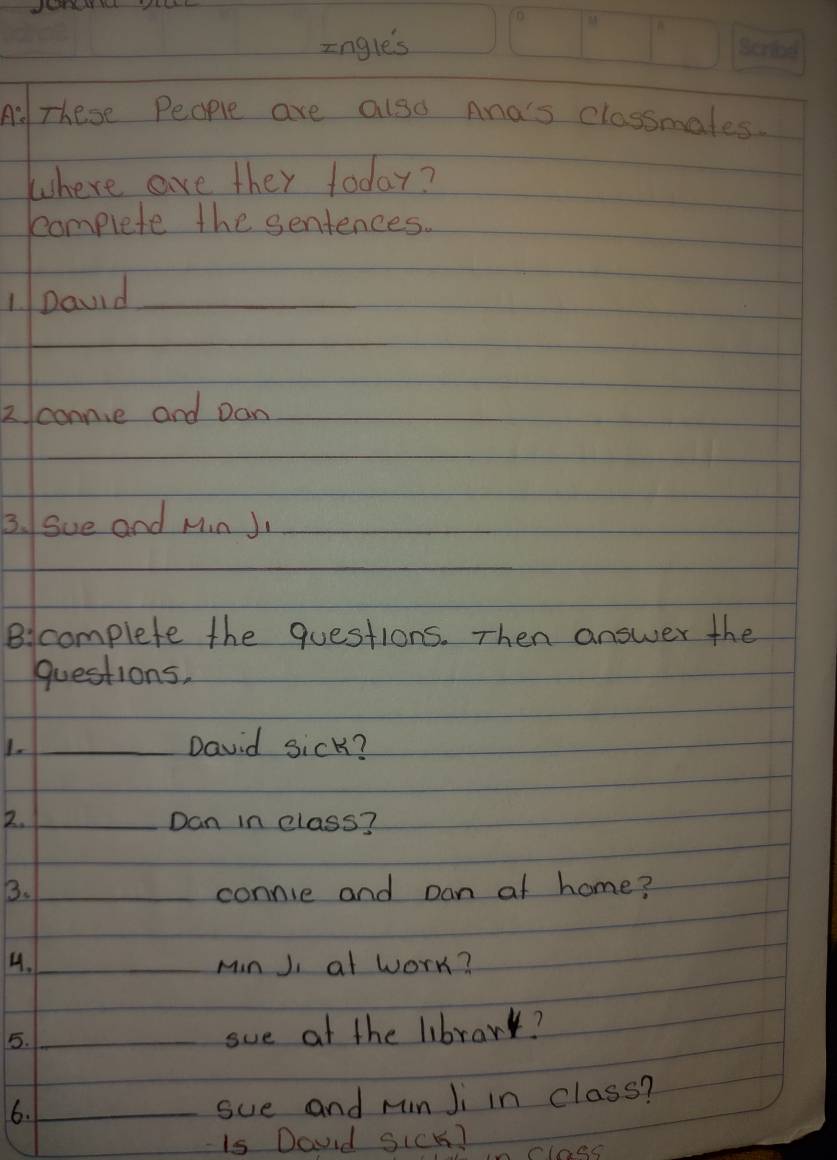 Inglés
Scribe
A: These People are also Ana's classmates.
Where are they today?
complete the sentences.
1. David
2. connie and Dan
3. Sue and Min Ji
B: complete the questions. Then answer the
questions.
1. David sick?
2. Dan in class?
3. connie and Dan at home?
4. Min Ji at work?
5. sue at the library?
6. sue and Min Ji in class?
Is David sick?
in class